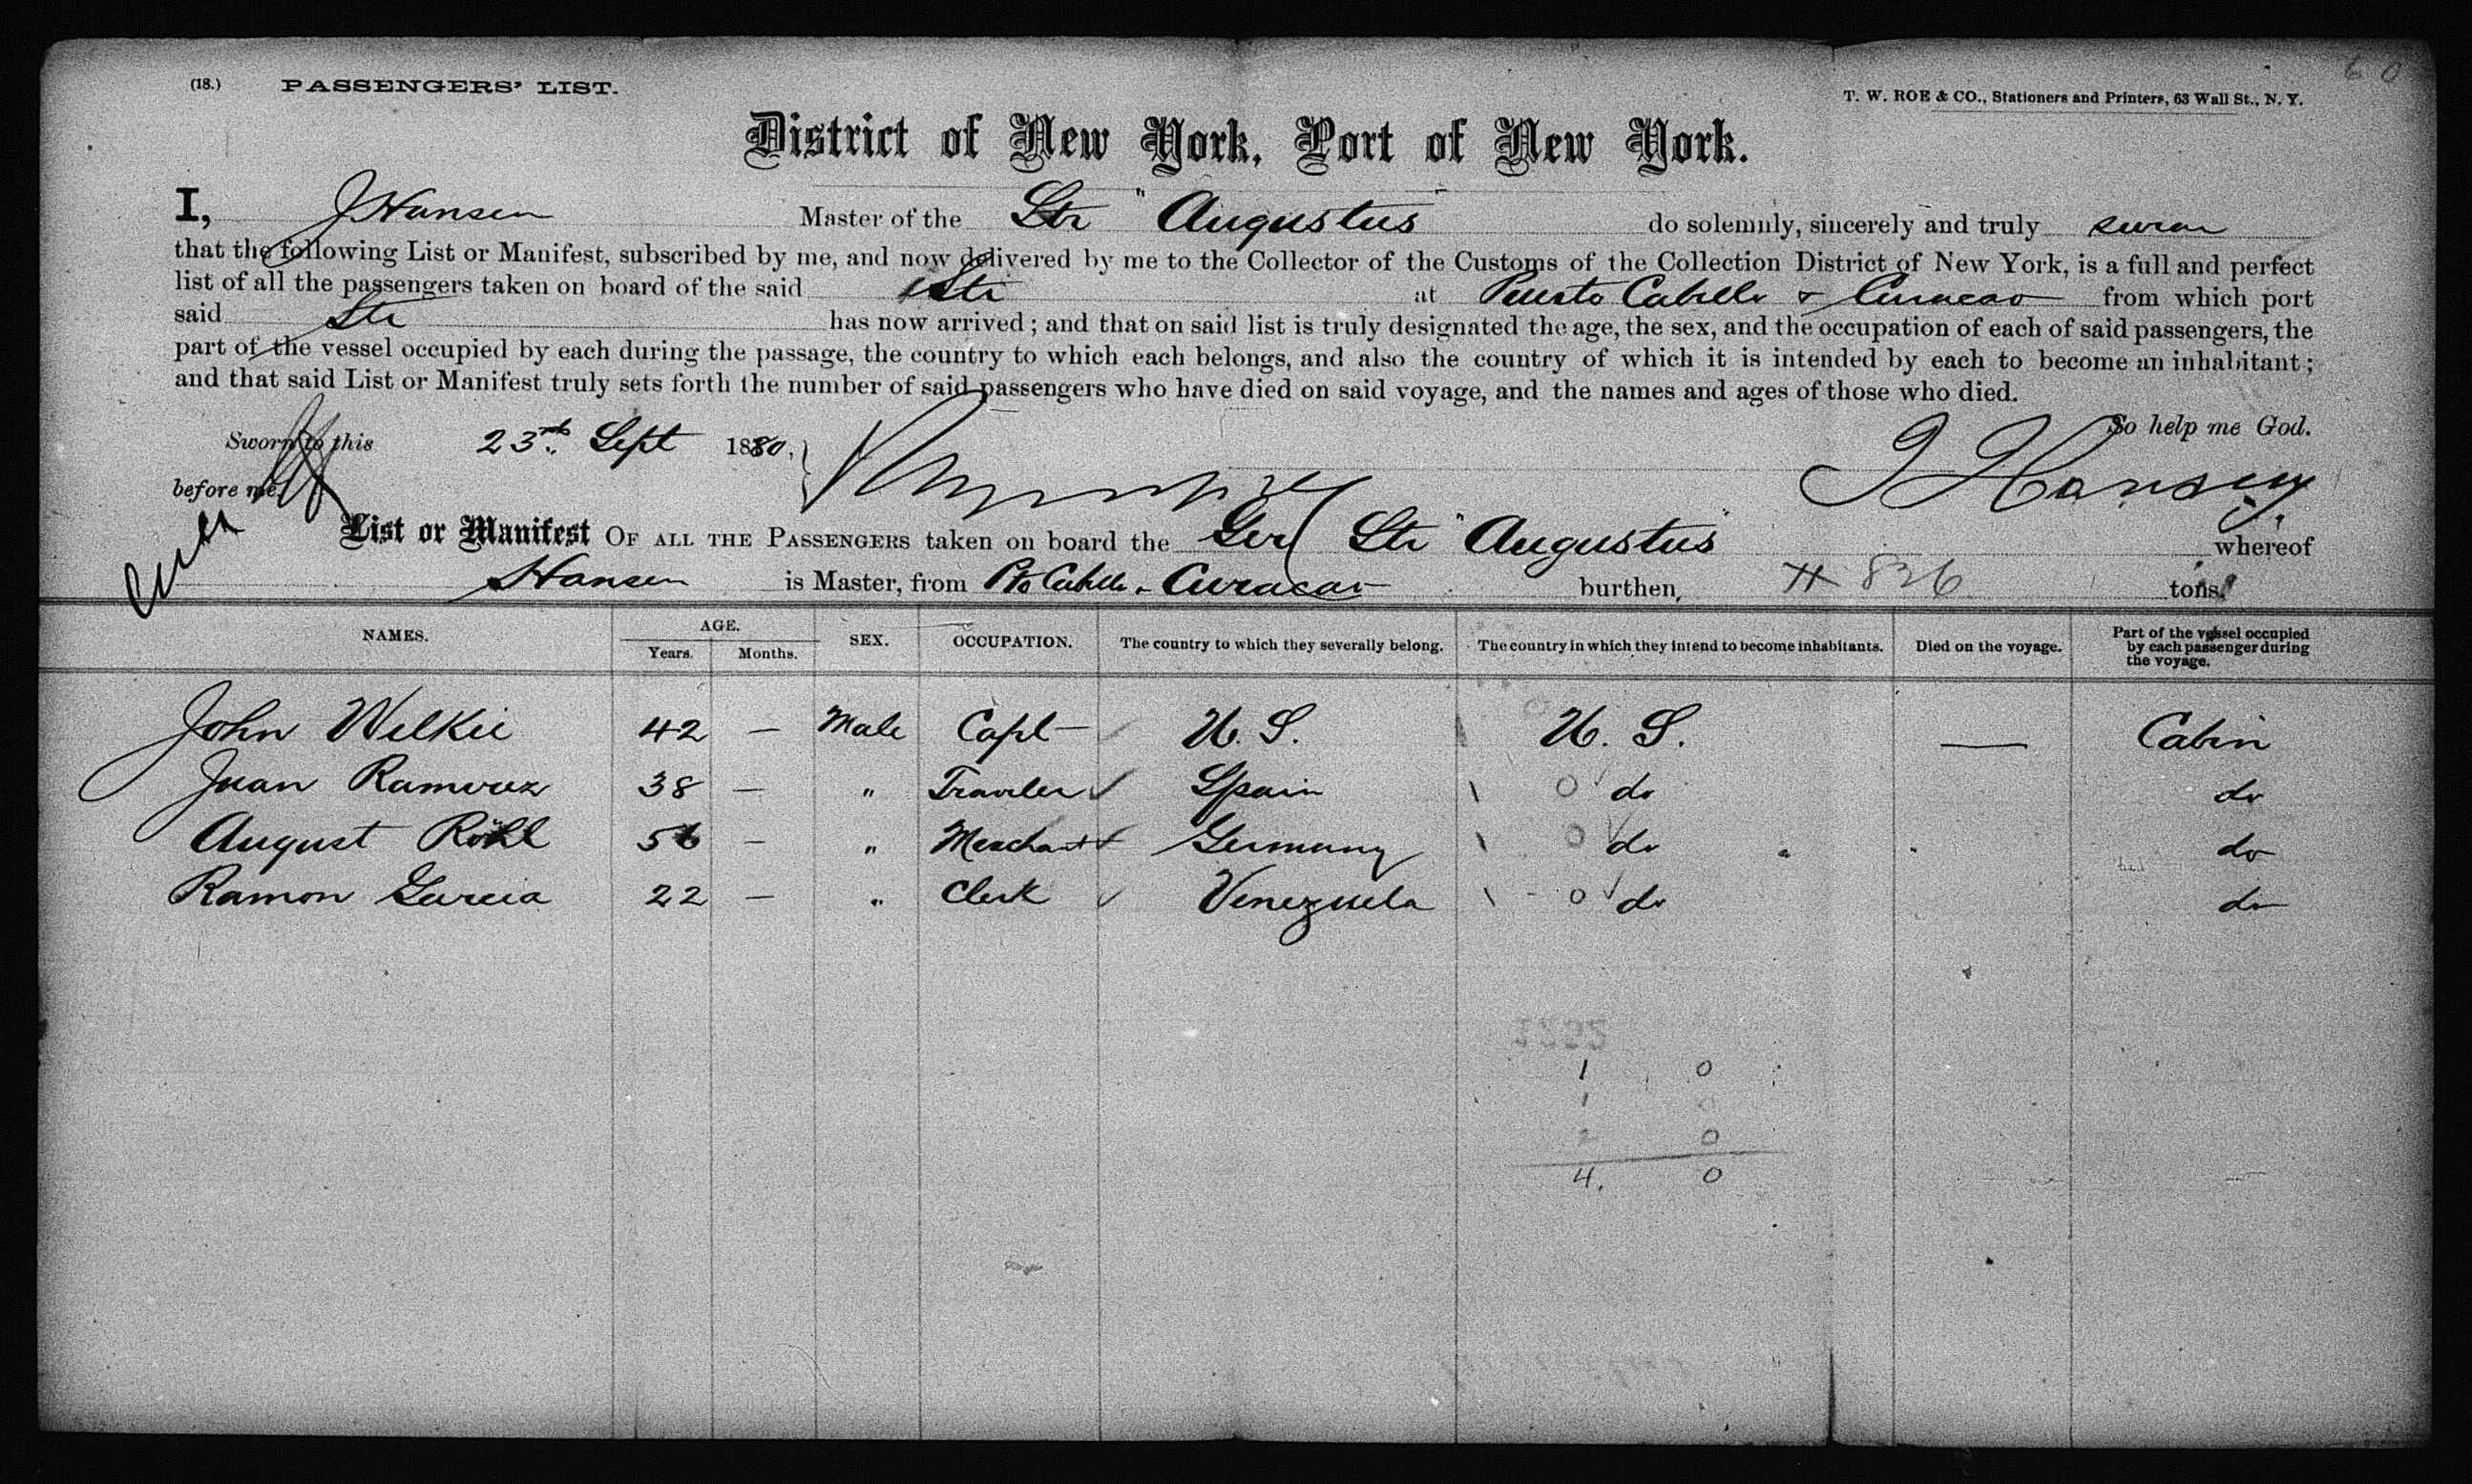 60
(18.) PASSENGERS' LIST. T. W. ROE & CO., Stationers and Printers, 63 Wall St., N. Y.
District of New York, Port of New York.
I, J Hansen Master of the Str "Augustus" do solemnly, sincerely and truly swear
that the following List or Manifest, subscribed by me, and now delivered by me to the Collector of the Customs of the Collection District of New York, is a full and perfect
list of all the passengers taken on board of the said Str at Puerto Cabello & Curacao from which port
said Str has now arrived; and that on said list is truly designated the age, the sex, and the occupation of each of said passengers, the
part of the vessel occupied by each during the passage, the country to which each belongs, and also the country of which it is intended by each to become an inhabitant;
and that said List or Manifest truly sets forth the number of said passengers who have died on said voyage, and the names and ages of those who died.
So help me God.
Sworn to this 23rd Sept 1880,
before me J Hansen
List or Manifest OF ALL THE PASSENGERS taken on board the Ger Str "Augustus" whereof
Hansen is Master, from Pto Cabello & Curacao burthen, 826 tons.
NAMES. AGE. Years. Months. SEX. OCCUPATION. The country to which they severally belong. The country in which they intend to become inhabitants. Died on the voyage. Part of the vessel occupied by each passenger during the voyage.
John Wilkie 42 — Male Capt U. S. U. S. — Cabin
Juan Ramirez 38 — " Traveler Spain 0 do do
August Röhl 56 — " Merchant Germany 0 do do
Ramon Garcia 22 — " Clerk Venezuela 0 do do
1 0
1 0
2 0
4. 0